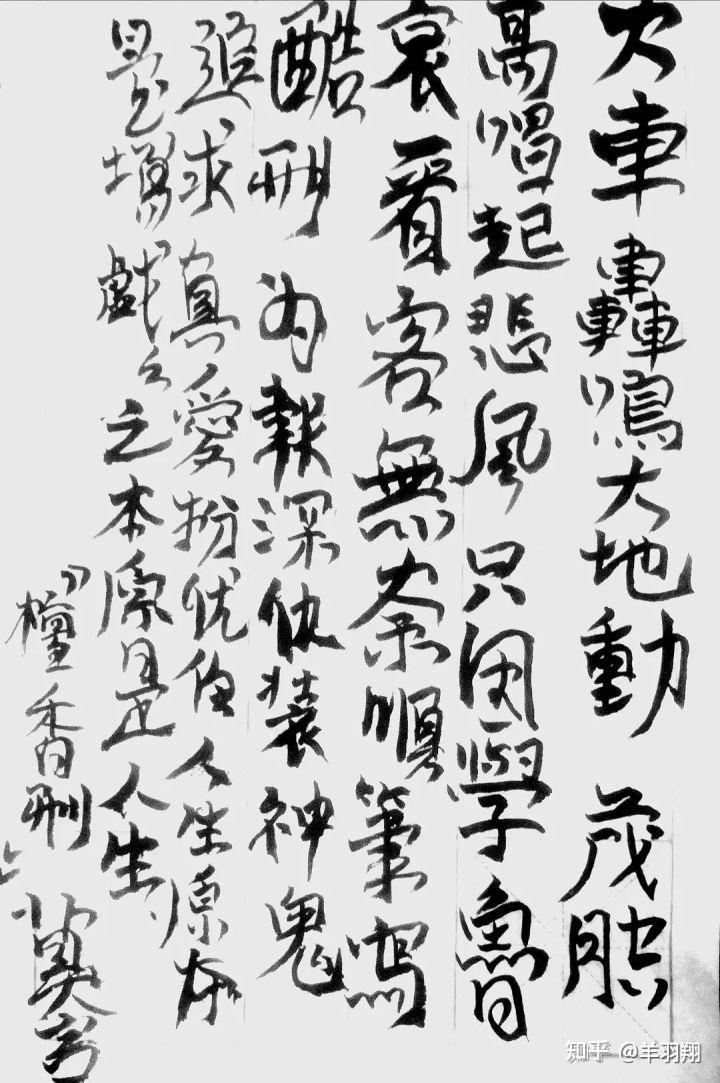 火車轟鳴大地動 茂腔
高唱起悲風 只因學魯
哀看客無奈順筆寫
酷刑 為報深仇裝神鬼
追求真愛扮优伶人生原本
是場戲々之本原是人生
『檀香刑』莫言
知乎 @羊羽翔